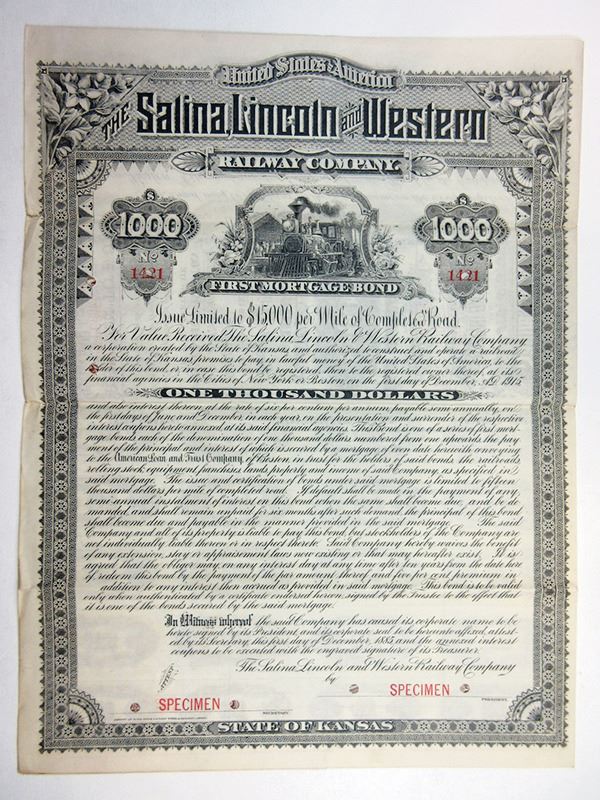 United States of America
THE Salina, Lincoln and Western
RAILWAY COMPANY
$ 1000 $ 1000
No 1421 No 1421
FIRST MORTGAGE BOND
Issue Limited to $15,000 per Mile of Completed Road.
For Value Received, The Salina, Lincoln & Western Railway Company
a corporation created by the State of Kansas, and authorized to construct and operate a railroad
in the State of Kansas, promises to pay in the gold money of the United States of America to the
holder of this bond, or in case this bond be registered, then to the registered owner thereof, at its
financial agencies in the Cities of New York or Boston, on the first day of December, A.D. 1915
ONE THOUSAND DOLLARS
and also interest thereon, at the rate of six per centum per annum, payable semi-annually, on
the first days of June and December, in each year, on the presentation and surrender of the respective
interest coupons hereto annexed, at its said financial agencies. This Bond is one of a series of first mort-
gage bonds each of the denomination of one thousand dollars numbered from one upwards, the pay-
ment of the principal and interest of which is secured by a mortgage of even date herewith conveying
to the American Loan and Trust Company of Boston, in trust for the holders of said bonds, the railroads,
rolling stock, equipment, franchises, lands, property and income of said Company, as specified in
said mortgage. The issue and certification of bonds under said mortgage is limited to fifteen
thousand dollars per mile of completed road. If default shall be made in the payment of any
semi-annual instalment of interest on this bond when the same shall become due, and be de-
manded, and shall remain unpaid for six months after such demand, the principal of this bond
shall become due and payable in the manner provided in the said mortgage. The said
Company and all of its property is liable to pay this bond, but stockholders of the Company are
not individually liable thereon or in respect thereto. Said Company hereby waives the benefit
of any extension, stay or appraisement laws now existing or that may hereafter exist. It is
agreed that the obligor may, on any interest day at any time after ten years from the date here-
of, redeem this bond by the payment of the par amount thereof, and five per cent premium in
addition to any interest then accrued as provided in said mortgage. This bond is to be valid
only when authenticated by a certificate endorsed hereon, signed by the Trustee to the effect that
it is one of the bonds secured by the said mortgage.
In Witness whereof the said Company has caused its corporate name to be
hereto signed by its President, and its corporate seal to be hereunto affixed, attest-
ed by its Secretary, this first day of December, 1885, and the annexed interest
coupons to be executed with the engraved signature of its Treasurer.
The Salina, Lincoln and Western Railway Company
by
SPECIMEN SPECIMEN
SECRETARY. PRESIDENT.
STATE OF KANSAS